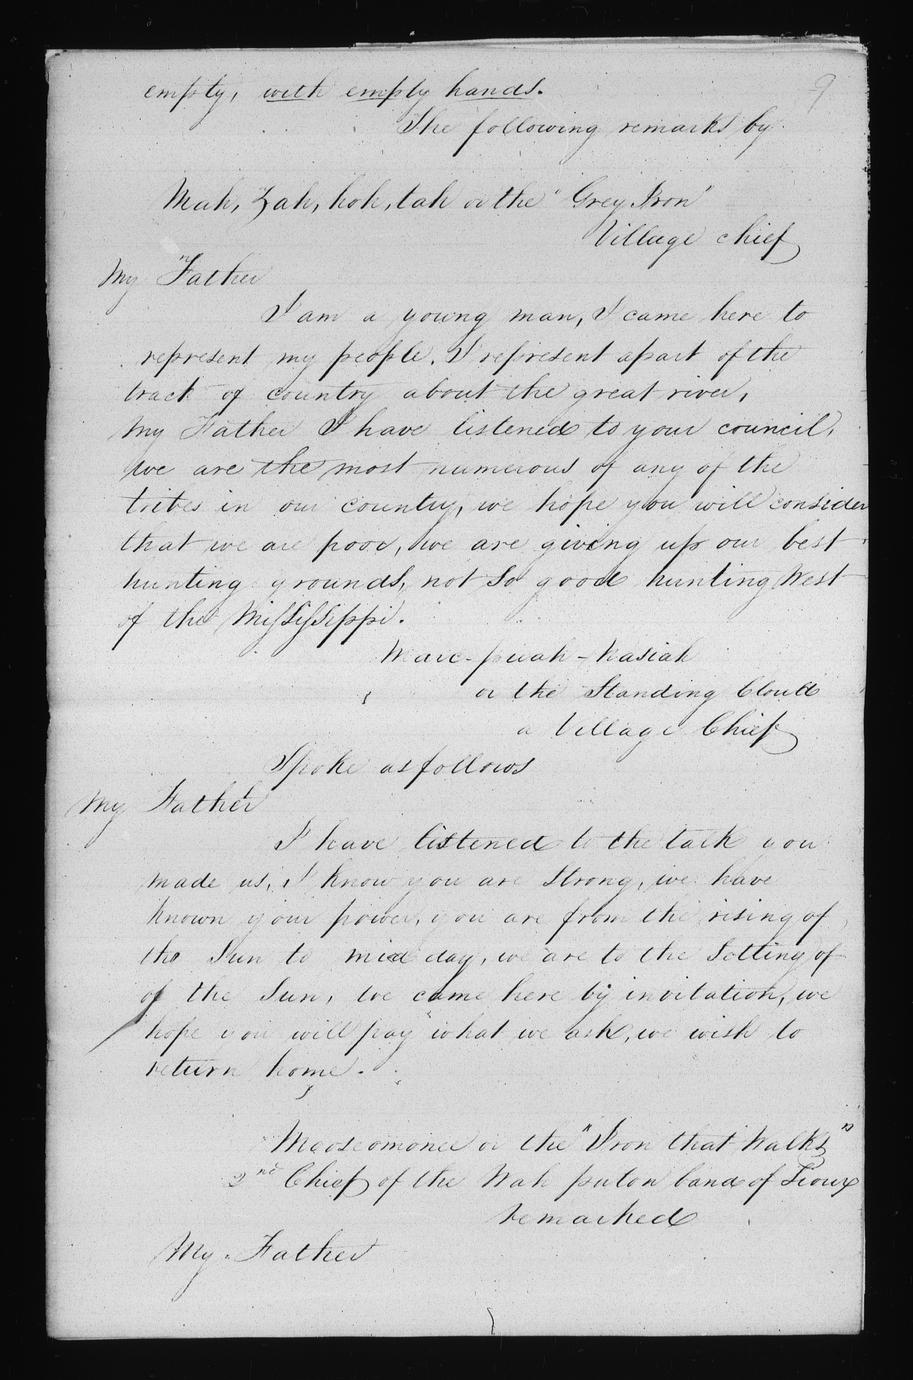 9
empty, with empty hands.
The following remarks by
Mah, Zah, hoh, tah or the "Grey Iron"
Village chief
My Father
I am a young man, I came here to
represent my people. I represent apart of the
tract of country about the great river,
My Father I have listened to your council,
we are the most numerous of any of the
tribes in our country, we hope you will consider
that we are poor, we are giving up our best
hunting grounds, not so good hunting West
of the Mississippi.
or the Standing Cloud
a Village Chief
Spoke as follows
My Father
I have listened to the talk you
made us, I know you are strong, we have
known your power, you are from the rising of
the Sun to mid day, we are to the Setting of
of the Sun, We came here by invitation, we
hope you will pay what we ask, we wish to
return home.
Mooseomonee or the "Iron that Walks"
2nd Chief of the Wah puton band of Sioux
remarked
My Father